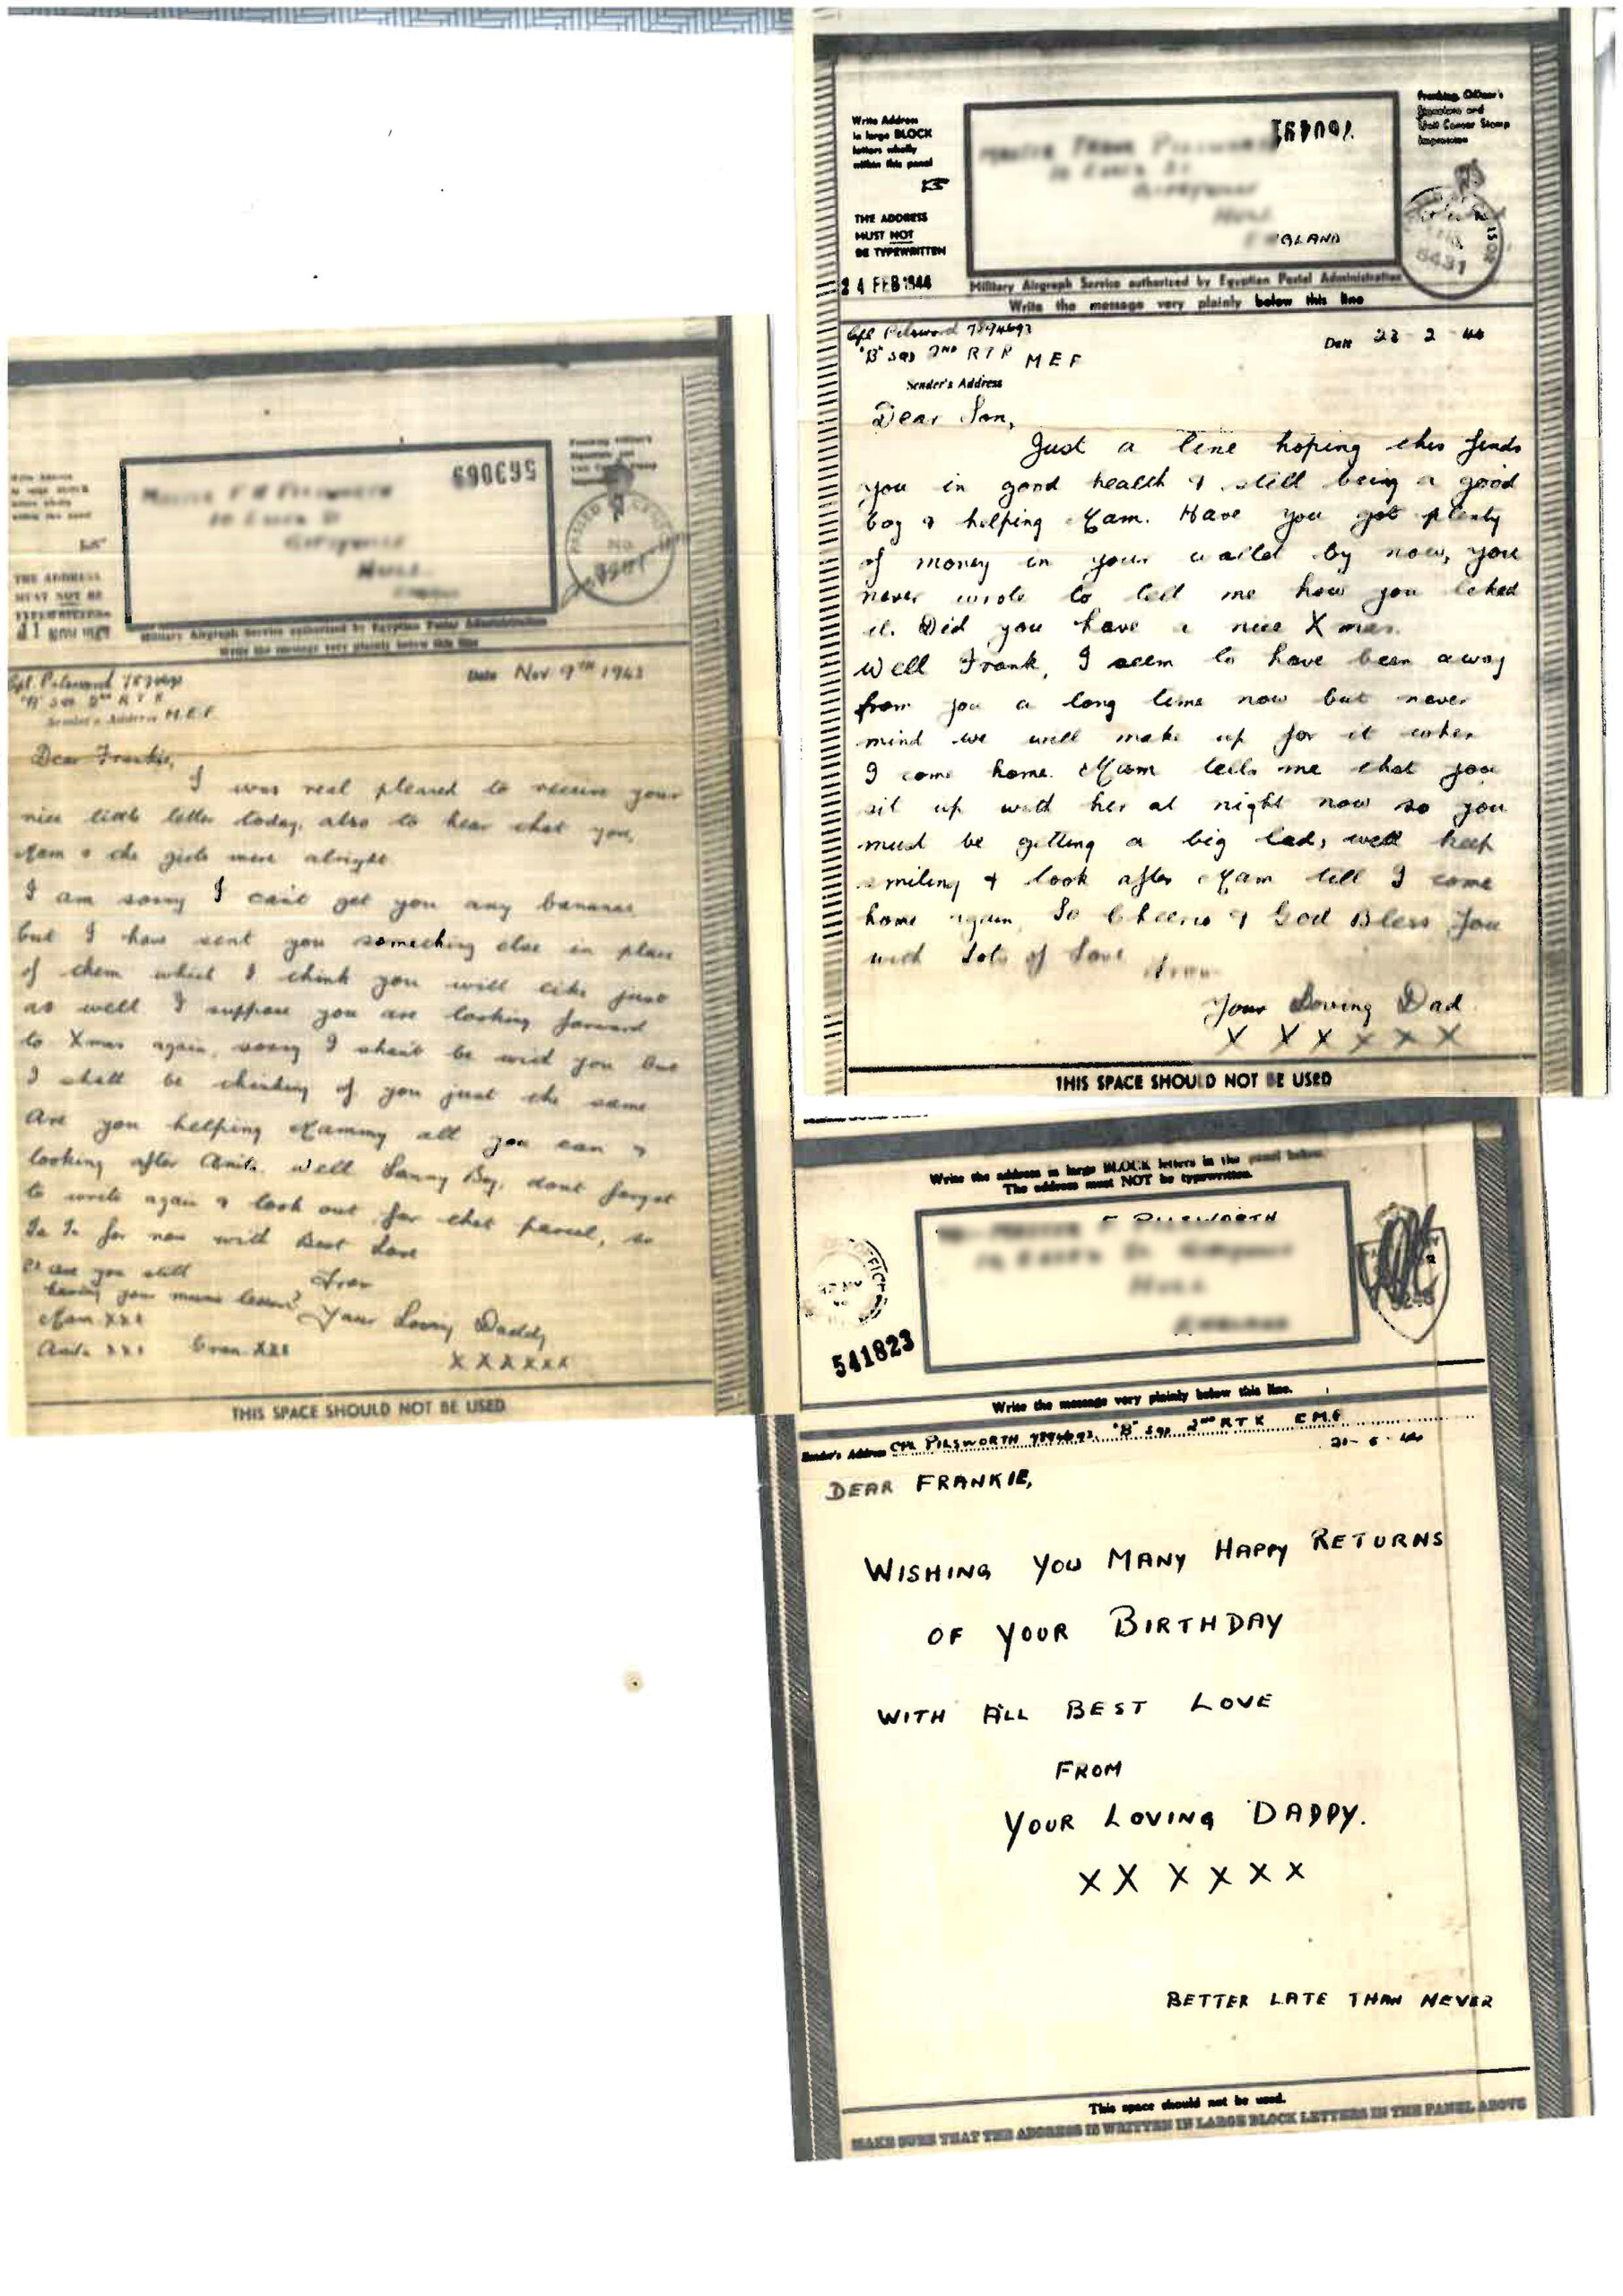 569069
THE ADDRESS
MUST NOT BE
TYPEWRITTEN
Military Airgraph Service authorised by Egyptian Postal Administration
Write the message very plainly below this line
Date Nov 9TH 1943
Sender's Address M.E.F
Dear Frankie,
I was real pleased to receive your
nice little letter today, also to hear that you,
Mam & the girls were alright.
I am sorry I can't get you any bananas
but I have sent you something else in place
of them which I think you will like just
as well. I suppose you are looking forward
to Xmas again, sorry I shan't be with you but
I shall be thinking of you just the same
Are you helping Mammy all you can &
looking after Anita. Well Sonny Boy, dont forget
to write again & look out for that parcel, so
Ta Ta for now with Best Love
From
PS are you still
having your music lessons?
Your Loving Daddy
Mam xxx
Anita xxx
xxxxxx
THIS SPACE SHOULD NOT BE USED
Write Address
in large BLOCK
letters wholly
within this panel
THE ADDRESS
MUST NOT
BE TYPEWRITTEN
24 FEB 1944
Military Airgraph Service authorised by Egyptian Postal Administration
Write the message very plainly below this line
"B" SQD 2ND RTR MEF
Date 23-2-44
Sender's Address
Dear Son,
Just a line hoping this finds
you in good health & still being a good
boy & helping Mam. Have you got plenty
of money in your wallet by now, you
never wrote to tell me how you liked
it. Did you have a nice Xmas.
Well Frank, I seem to have been away
from you a long time now but never
mind we will make up for it when
I come home. Mam tells me that you
sit up with her at night now so you
must be getting a big lad, well keep
smiling & look after Mam till I come
home again, So Cheerio & God Bless You
with Lots of Love from
Your Loving Dad
X X X X X X
THIS SPACE SHOULD NOT BE USED
Write the address in large BLOCK letters in the panel below.
The address must NOT be typewritten.
F PILSWORTH
541823
Write the message very plainly below this line.
Sender's Address CPL PILSWORTH "B" SQD 2ND RTR C.M.F
DEAR FRANKIE,
WISHING YOU MANY HAPPY RETURNS
OF YOUR BIRTHDAY
WITH ALL BEST LOVE
FROM
YOUR LOVING DADDY.
XX XXXX
BETTER LATE THAN NEVER
This space should not be used.
MAKE SURE THAT THE ADDRESS IS WRITTEN IN LARGE BLOCK LETTERS IN THE PANEL ABOVE